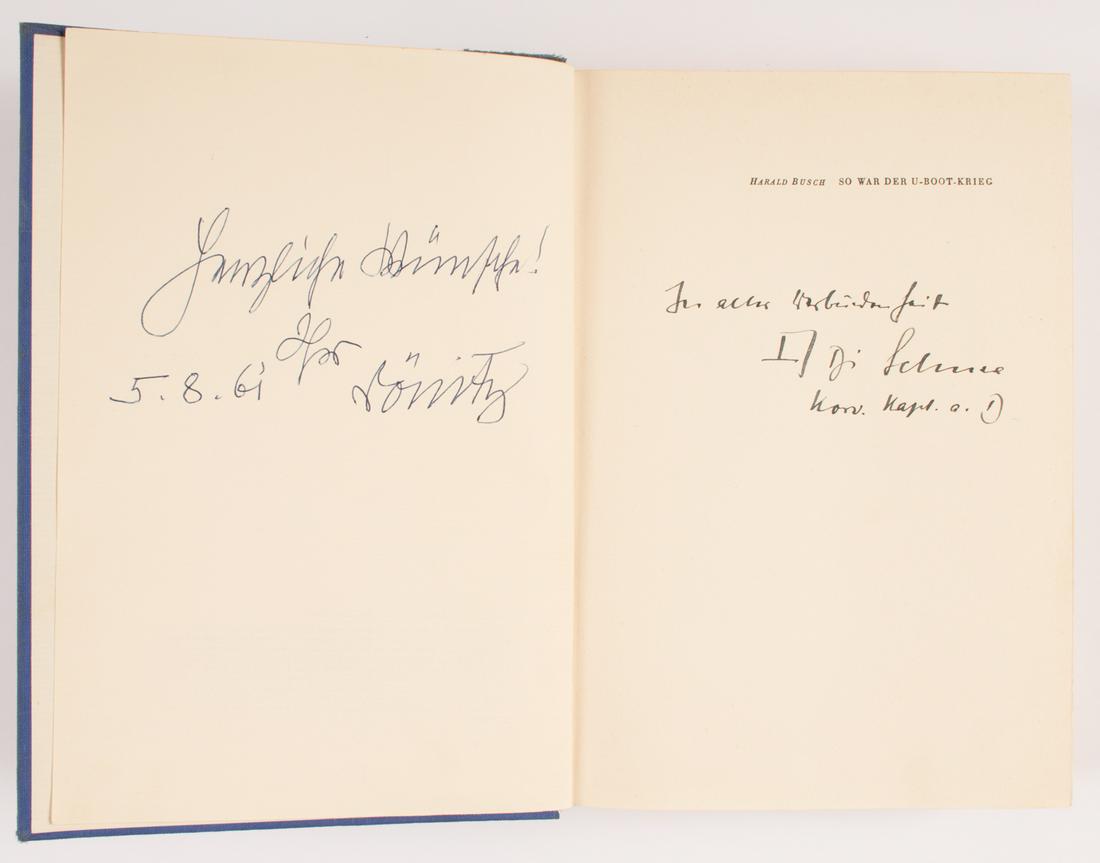 Herzliche Wünsche!
Ihr
5.8.61 Dönitz
HARALD BUSCH SO WAR DER U-BOOT-KRIEG
In alter Verbundenheit
Korv. Kapt. a. D